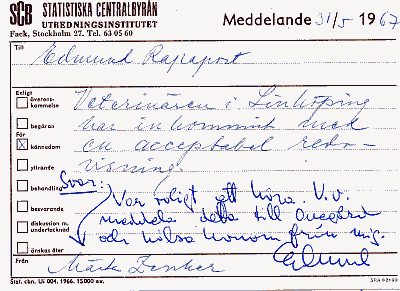 SCB STATISTISKA CENTRALBYRÅN
UTREDNINGSINSTITUTET
Fack, Stockholm 27. Tel. 63 05 60
Meddelande 31/5 1967
Till
Edmund Rapaport
Enligt
överens-
kommelse
begäran
För
kännedom
yttrande
behandling
besvarande
diskussion m.
undertecknad
önskas åter
Veterinären i Linköping
har inkommit med
en acceptabel redo-
visning.
Svar:
Var roligt att höra. V.v.
meddela detta till
och hälsa honom från mig.
Edmund
Från
Märta
Stat. cbn. Ui 004. 1966. 15 000 ex.